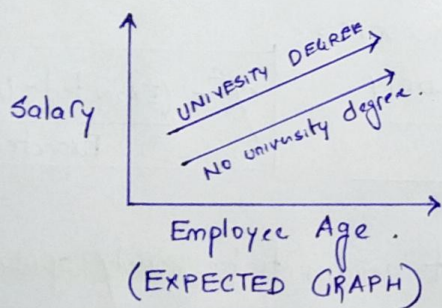 UNIVESITY DEGREE
Salary
No university degree.
Employee Age.
(EXPECTED GRAPH)